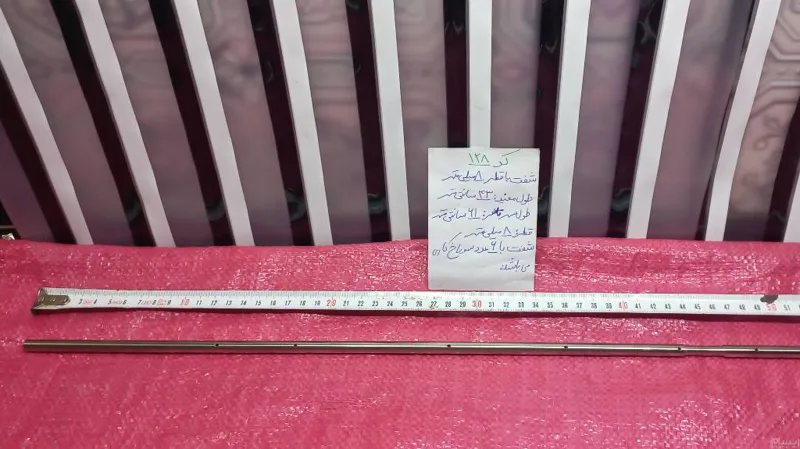 کد ۱۲۸
شفت با قطر ۸ میلی متر
طول مفید: ۴۳ سانتی متر
طول سر تا سر: ۶۱ سانتی متر
قطر: ۸ میلی متر
شفت با ۶ عدد سوراخ
می باشد
3 4 5 6 7 8 9 10 11 12 13 14 15 16 17 18 19 20 21 22 23 24 25 26 27 28 29 30 31 32 33 34 35 36 37 38 39 40 41 42 43 44 45 46 47 48 49 50 51